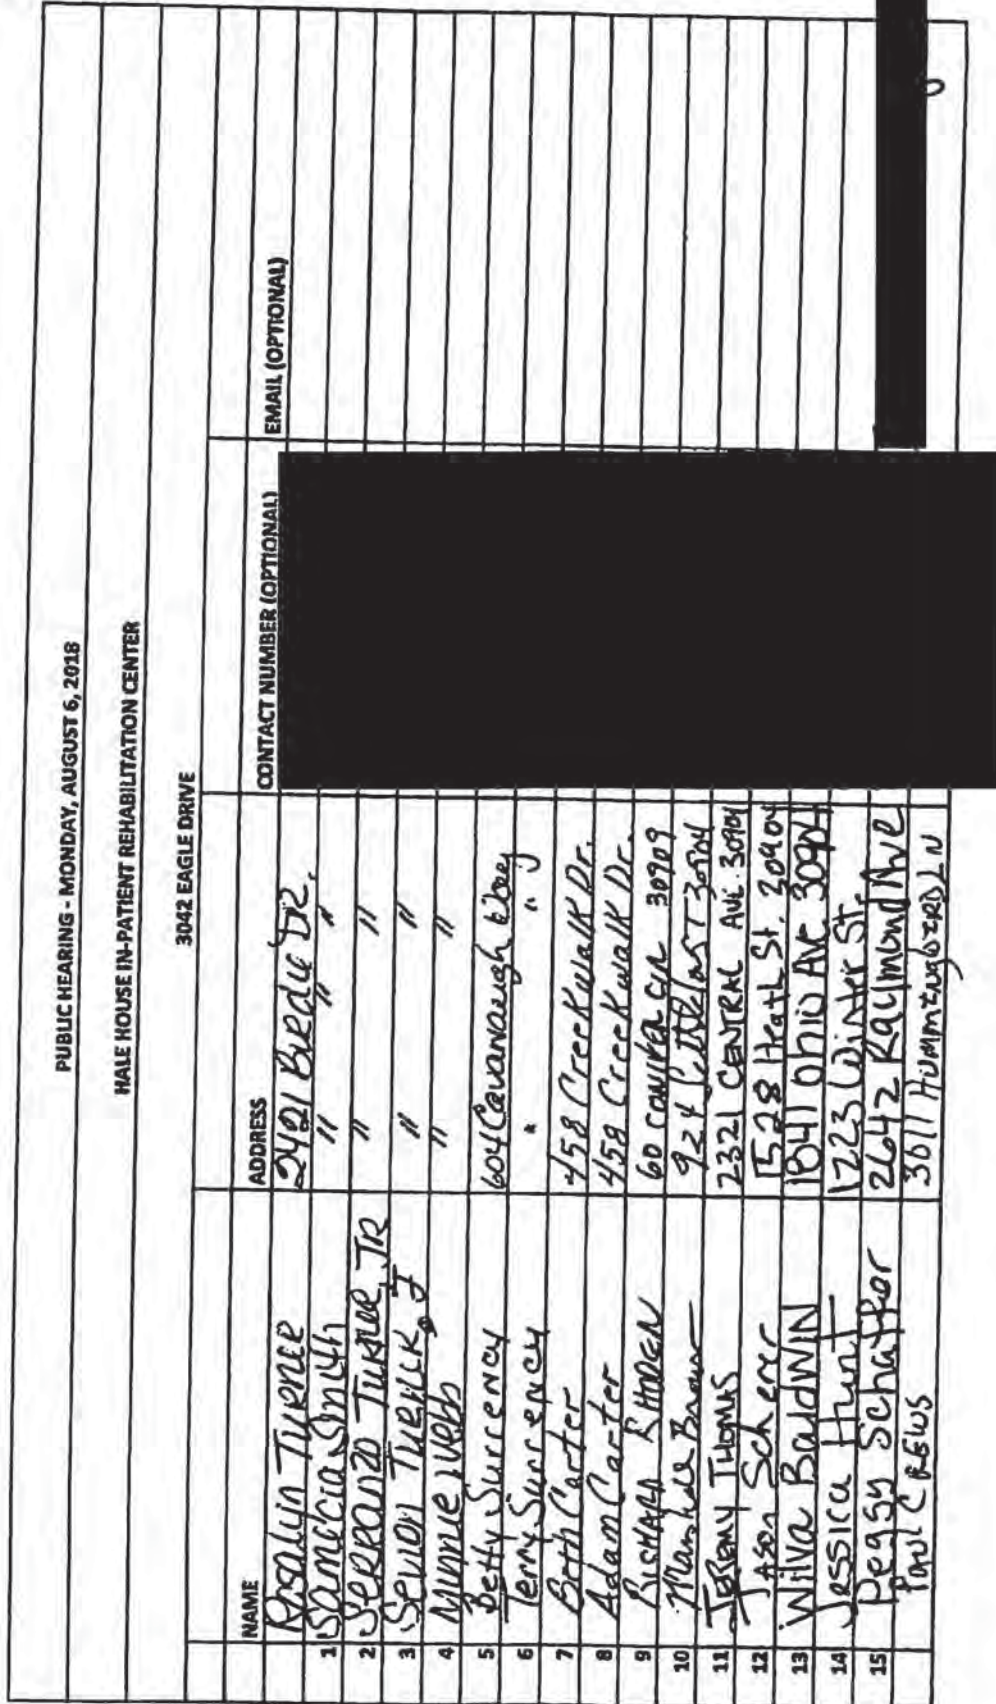 PUBLIC HEARING - MONDAY, AUGUST 6, 2018
HALE HOUSE IN-PATIENT REHABILITATION CENTER
3042 EAGLE DRIVE
NAME ADDRESS CONTACT NUMBER (OPTIONAL) EMAIL (OPTIONAL)
Rosalyn Turner 2421 Birdie Dr.
1 Samdcia Smith " " "
2 Serranzo Turner, JR " "
3 " "
4 Minnie Webb " "
5 Betty Surrency 604 Cavanaugh Way
6 Terry Surrency " " "
7 Beth Carter 458 Creekwalk Dr.
8 Adam Carter 458 Creekwalk Dr.
9 RICHARD RHODEN 60 CONIFER CIR 30909
10 Marshall Brown 924 ST 30904
11 JEREMY THOMAS 2321 CENTRAL AVE. 30904
12 JASON Scherer 1528 Heath St. 30904
13 Wilva BaldwIN 1841 Ohio Ave 30904
14 Jessica Hunt 1223 Winter St.
15 Peggy Schaffer 2642 Raymond Ave
PAUL CREWS 3011 HUMMINGBIRD LN